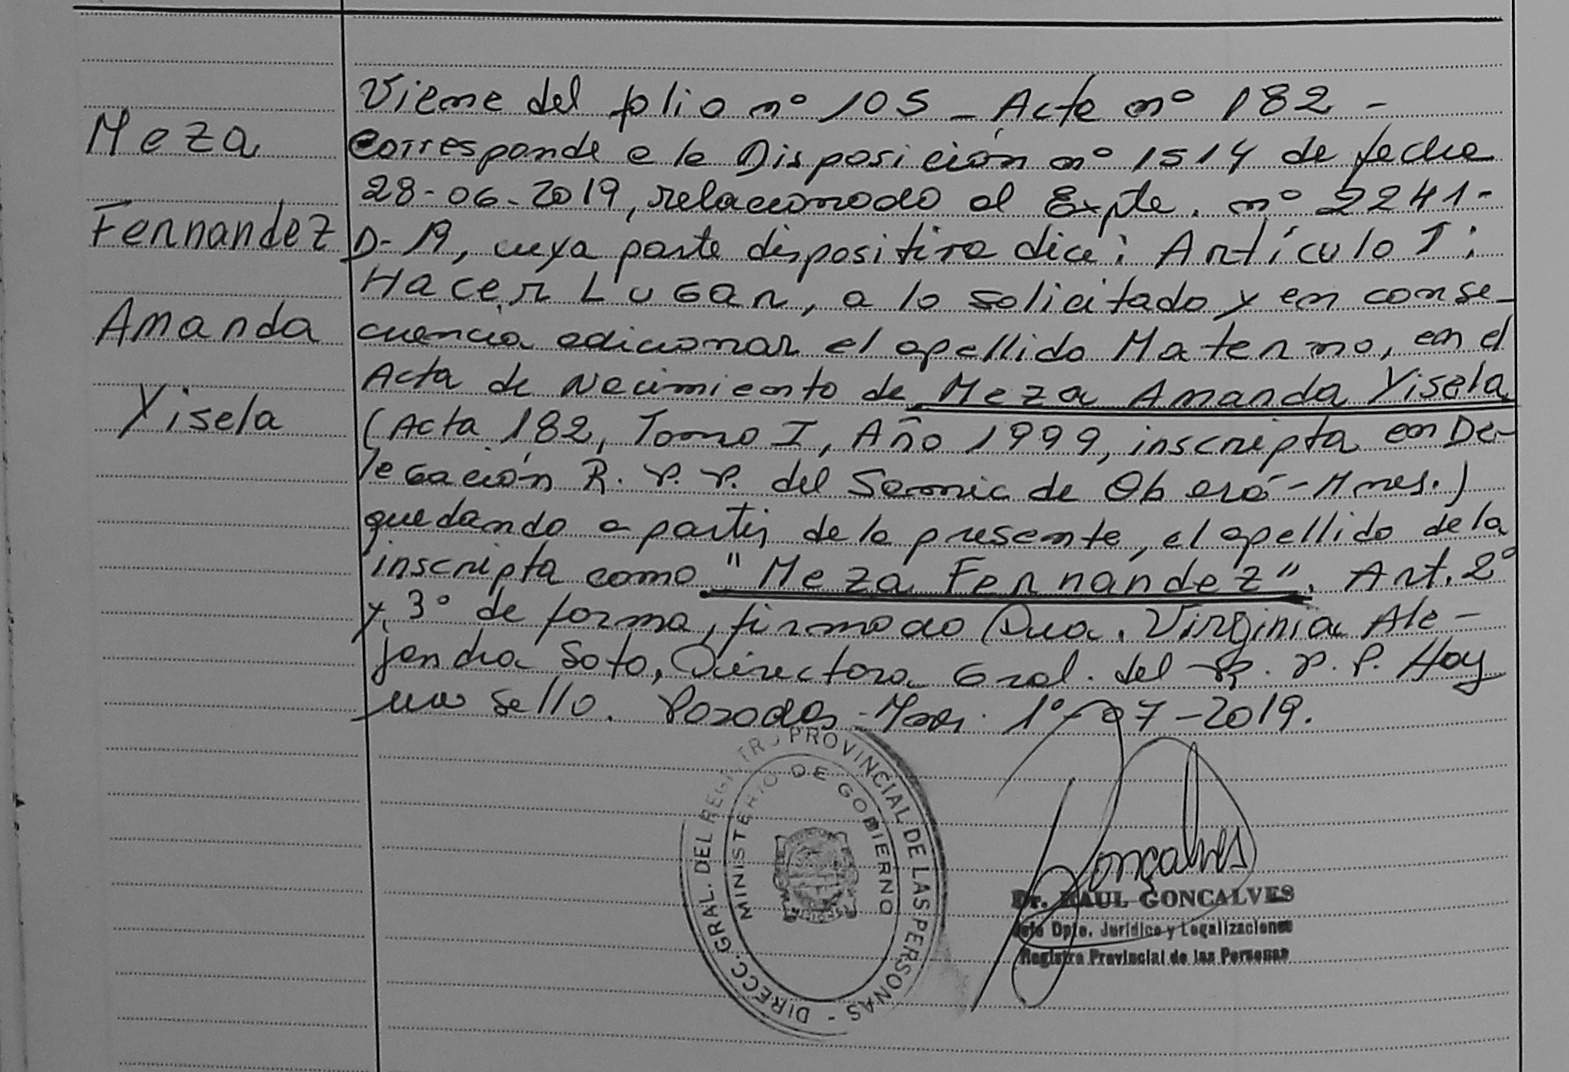 Meza
Fernandez
Amanda
Yisela
Viene del folio nº 105 - Acta nº 182 -
Corresponde a la Disposición nº 1514 de fecha
28-06-2019, relacionado al Expte. nº 2241-
D-19, cuya parte dispositiva dice: Artículo I:
Hacer Lugar, a lo solicitado y en conse-
cuencia adicionar el apellido Materno, en el
Acta de Nacimiento de Meza Amanda Yisela
(Acta 182, Tomo I, Año 1999, inscripta en De-
legación R. P. P. del Samic de Oberá - Mnes.)
quedando a partir de la presente, el apellido de la
inscripta como "Meza Fernández". Art. 2º
y 3º de forma, firmado Dra. Virginia Ale-
jandra Soto, Directora Gral. del R. P. P. Hay
un sello. Posadas - Mnes. 1º-07-2019.
DIRECC. GRAL. DEL REGISTRO PROVINCIAL DE LAS PERSONAS -
MINISTERIO DE GOBIERNO
Gonçalves
Dr. RAUL GONCALVES
Jefe Dpto. Jurídico y Legalizaciones
Registro Provincial de las Personas